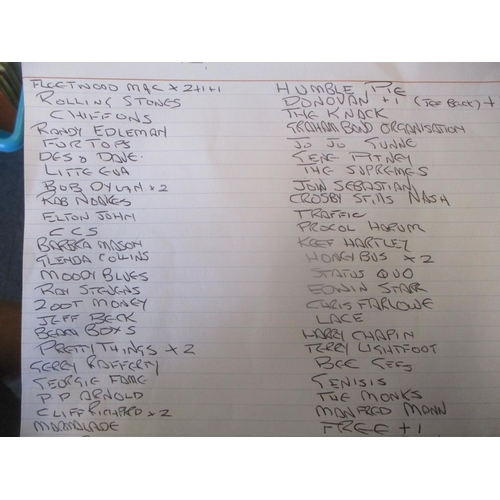 FLEETWOOD MAC x 2+1+1
ROLLING STONES
CHIFFONS
RANDY EDLEMAN
FUR TOPS
DES & DAVE
LITTE EVA
BOB DYLAN x 2
RAB NOAKES
ELTON JOHN
CCS
BARBRA MASON
GLENDA COLLINS
MOODY BLUES
RAY STEVENS
ZOOT MONEY
JEFF BECK
BEAM BOYS
PRETTY THINGS x 2
GERRY RAFFERTY
GEORGIE FAME
P P ARNOLD
CLIFF RICHARD x 2
MARMALADE
HUMBLE PIE
DONOVAN +1 (JEF BECK) +
THE KNACK
GRAHAM BOND ORGANISATION
JO JO GUNNE
GENE PITNEY
THE SUPREMES
JOHN SEBASTIAN
CROSBY STILLS NASH
TRAFFIC
PROCOL HARUM
KEEF HARTLEY
HONEYBUS x 2
STATUS QUO
EDWIN STARR
CHRIS FARLOWE
LACE
HARRY CHAPIN
TERRY LIGHTFOOT
BEE GEES
GENISIS
THE MONKS
MANFRED MANN
FREE +1